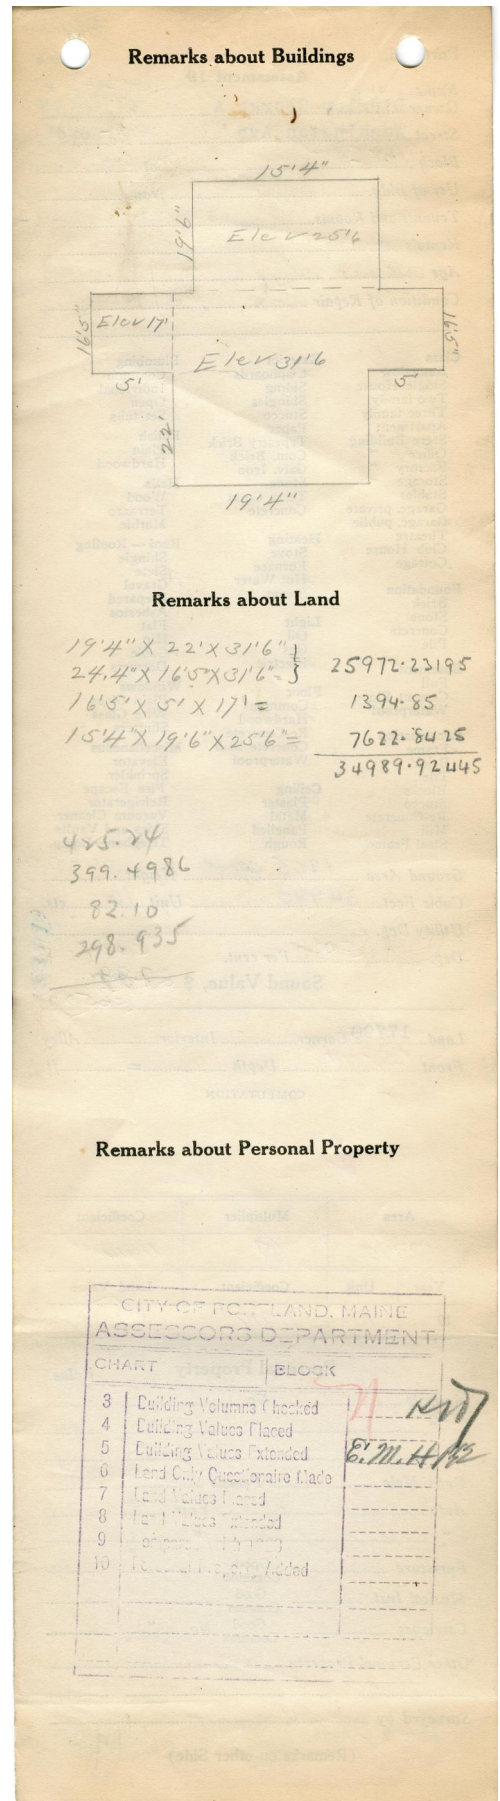 Remarks about Buildings
15'4"
19'6"
Elev 25'6
16'5"
Elev 17'
Elev 31'6
16'5"
5'
5'
22'
19'4"
Remarks about Land
19'4" X 22' X 31'6" }
24.4" X 16'5" X 31'6" = } 25972.23195
16'5' X 5' X 17' = 1394.85
15'4" X 19'6" X 25'6" = 7622.8425
34989.92445
425.24
399.4986
82.10
298.935
Remarks about Personal Property
CITY OF PORTLAND, MAINE
ASSESSORS DEPARTMENT
CHART BLOCK
3 Building Volumes Checked
4 Building Values Placed
5 Building Values Extended E.M.H.
6 Land Only Questionaire Made
7 Land Values Placed
8 Land Values Extended
9
10 Personal Property Added